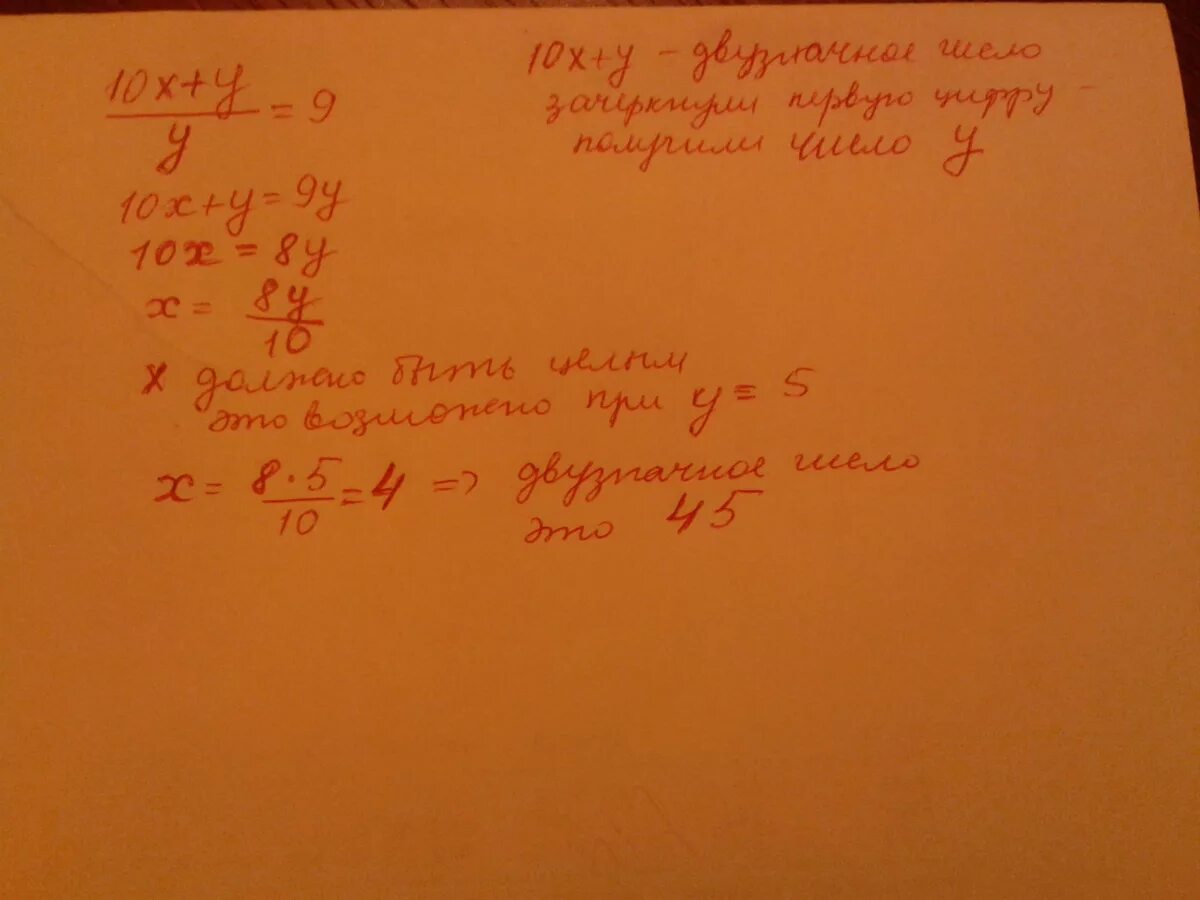 10x+y - двузначное число
зачеркнули первую цифру -
получили число y
10x+y / y = 9
10x+y=9y
10x = 8y
x = 8y / 10
x должно быть целым
это возможно при y = 5
x = 8·5 / 10 = 4 => двузначное число
это 45